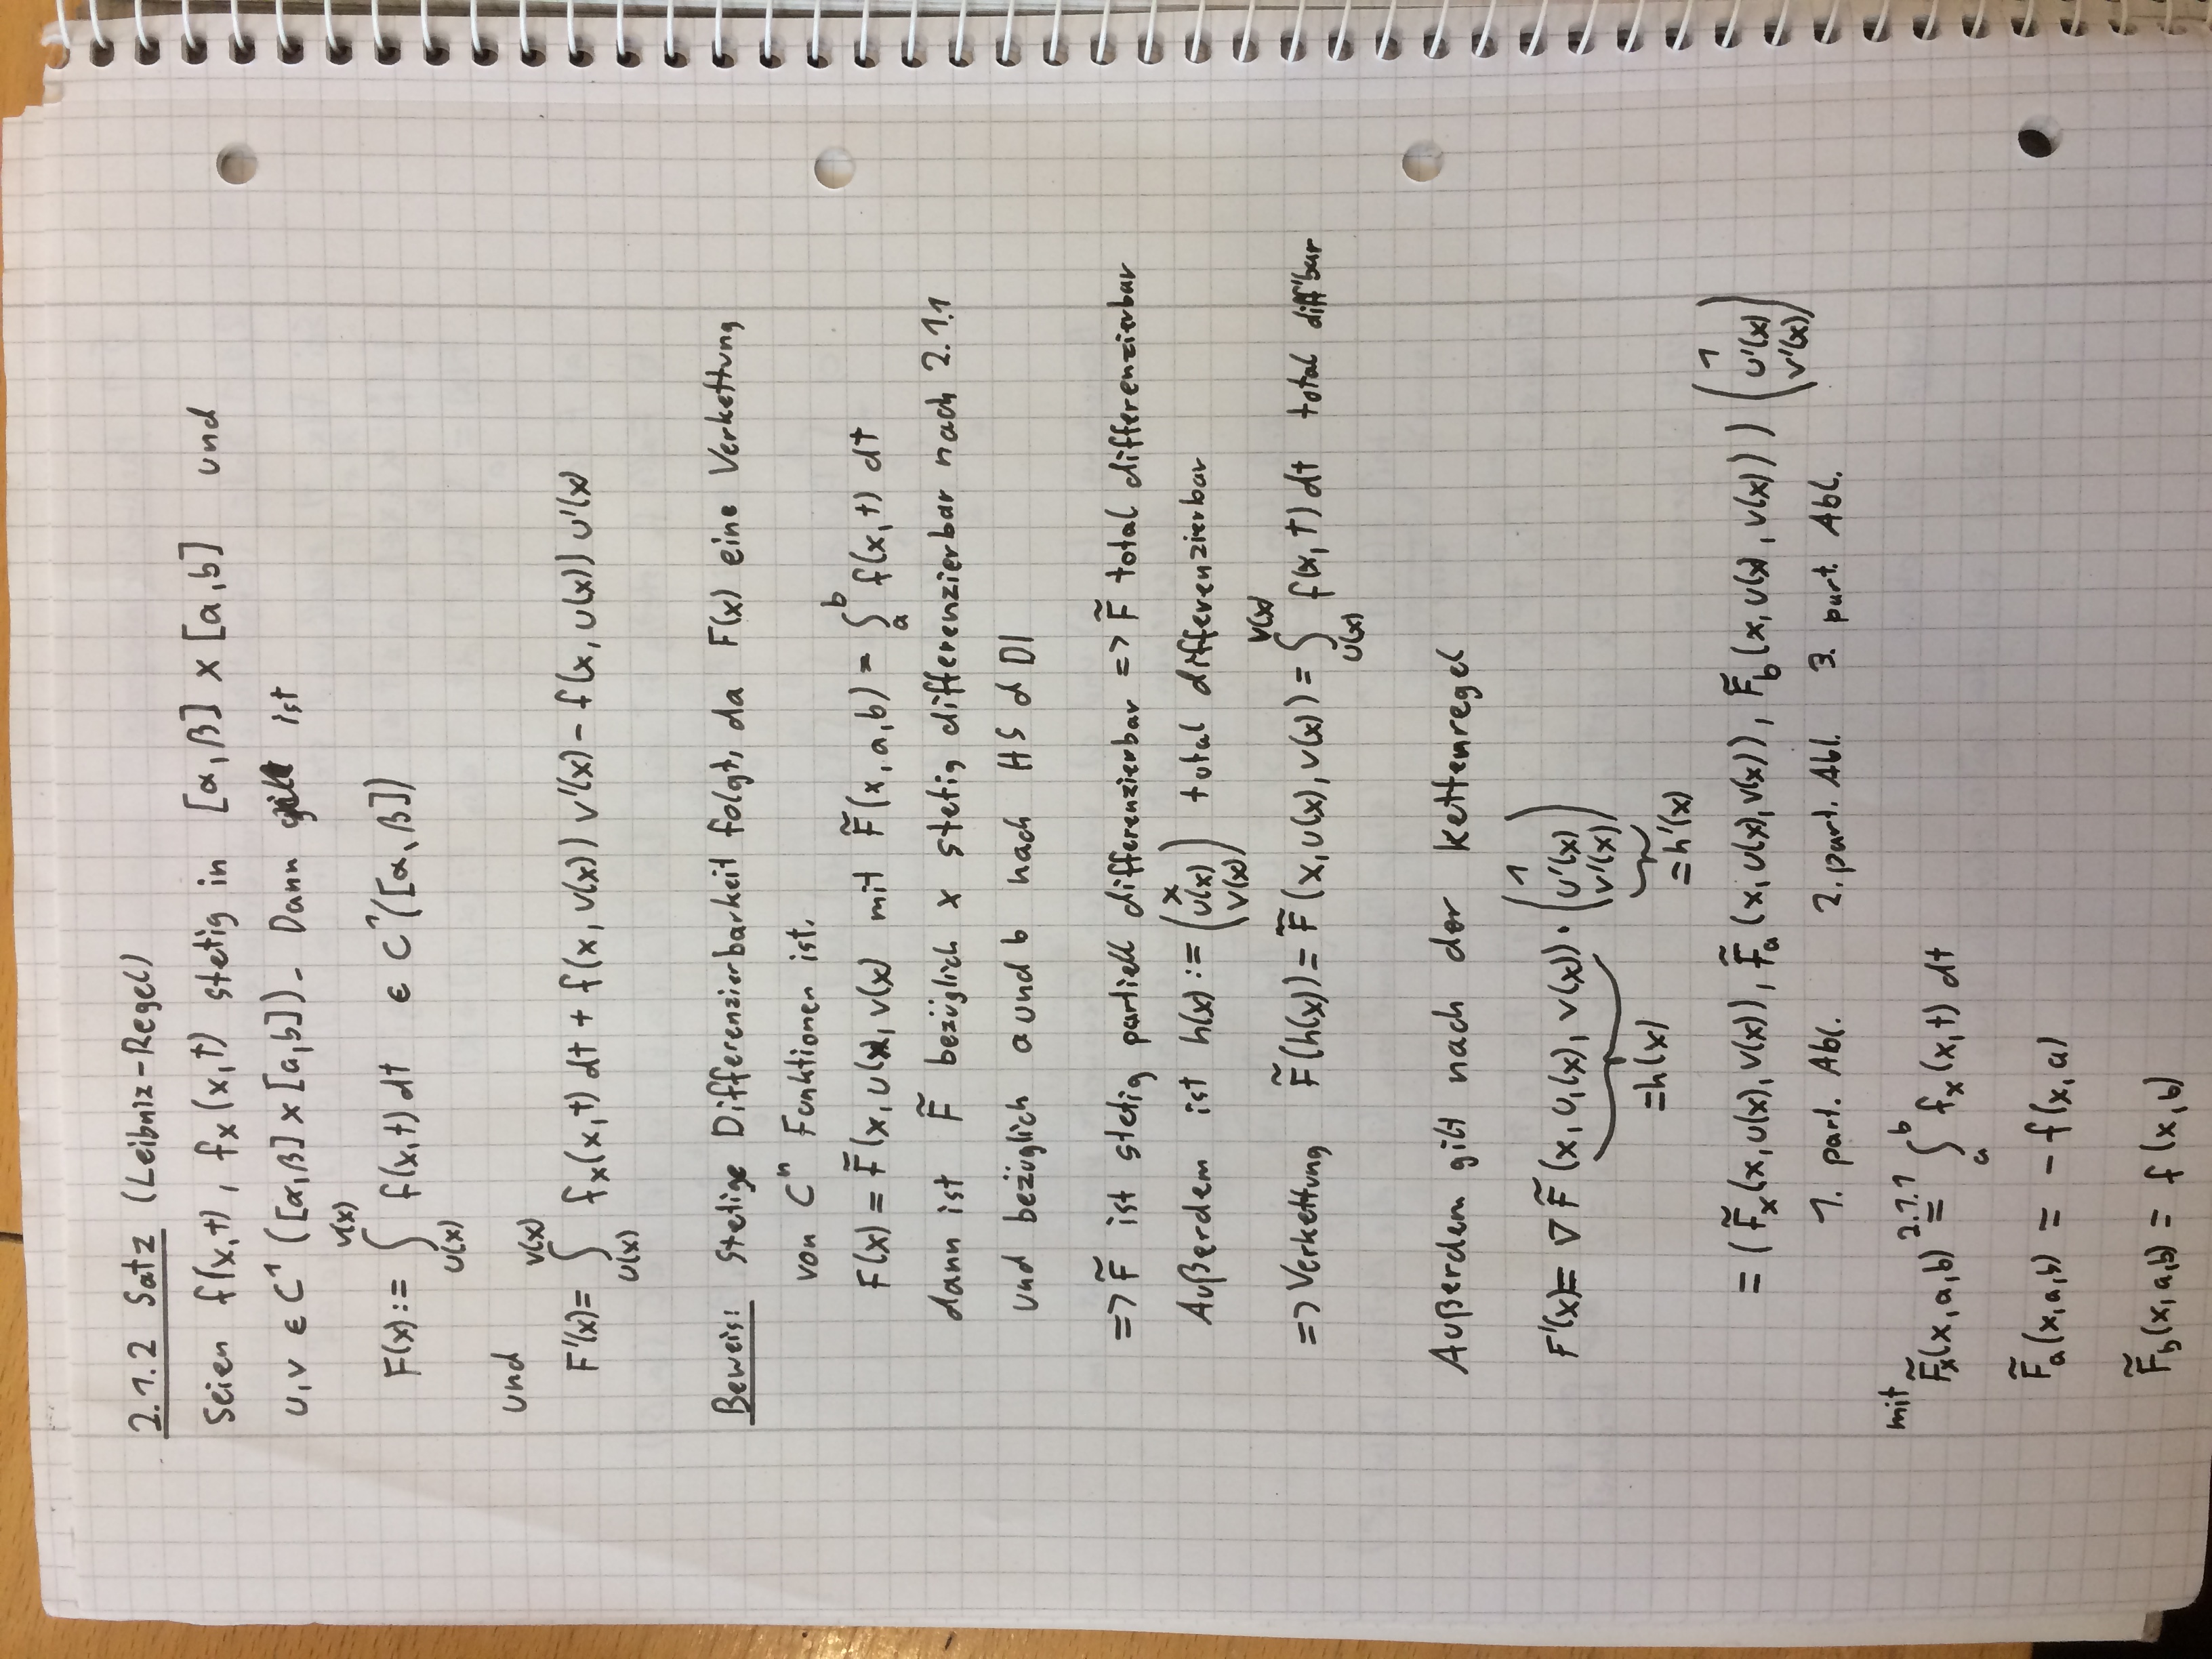 2.1.2 Satz (Leibniz-Regel)
Seien f(x,t), fₓ(x,t) stetig in [α,β] x [a,b] und
u,v ∈ C¹ ([α,β] x [a,b]). Dann ist
F(x) := ∫_{u(x)}^{v(x)} f(x,t) dt ∈ C¹([α,β])
und
F'(x) = ∫_{u(x)}^{v(x)} fₓ(x,t) dt + f(x, v(x)) v'(x) - f(x, u(x)) u'(x)
Beweis: Stetige Differenzierbarkeit folgt, da F(x) eine Verkettung
von Cⁿ Funktionen ist.
F(x) = F̃(x, u(x), v(x) mit F̃(x,a,b) = ∫_a^b f(x,t) dt
dann ist F̃ bezüglich x stetig differenzierbar nach 2.1.1
und bezüglich a und b nach HS d DI
=> F̃ ist stetig partiell differenzierbar => F̃ total differenzierbar
Außerdem ist h(x) := (x u(x) v(x)) total differenzierbar
=> Verkettung F̃(h(x)) = F̃(x, u(x), v(x)) = ∫_{u(x)}^{v(x)} f(x,t) dt total diff'bar
Außerdem gilt nach der Kettenregel
F'(x) = ∇ F̃ (x, u,(x), v(x)) · (1 u'(x) v'(x))
= h(x)
= h'(x)
= (F̃ₓ(x,u(x),v(x)), F̃_a (x,u(x),v(x)), F̃_b (x,u(x),v(x))) (1 u'(x) v'(x))
1. part. Abl. 2. part. Abl. 3. part. Abl.
mit
F̃ₓ(x,a,b) =^{2.1.1} ∫_a^b fₓ(x,t) dt
F̃_a(x,a,b) = -f(x,a)
F̃_b(x,a,b) = f(x,b)